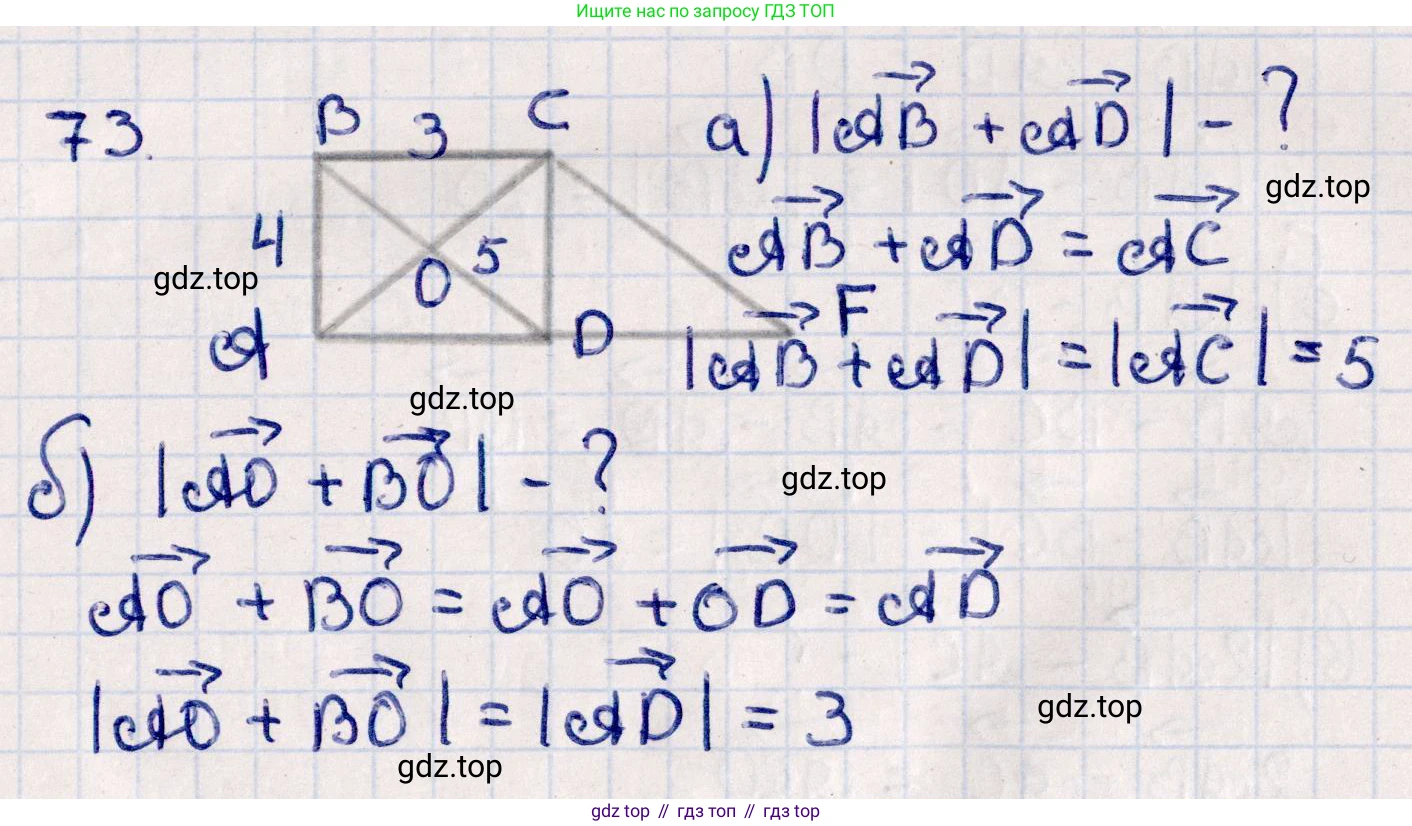 Ищите нас по запросу ГДЗ ТОП
73. B 3 C а) |AB + AD| - ?
gdz.top
4 O 5 AB + AD = AC
gdz.top
A D F |AB + AD| = |AC| = 5
gdz.top
б) |AO + BO| - ?
gdz.top
AO + BO = AO + OD = AD
|AO + BO| = |AD| = 3
gdz.top
gdz.top
gdz top // гдз топ // гдз top